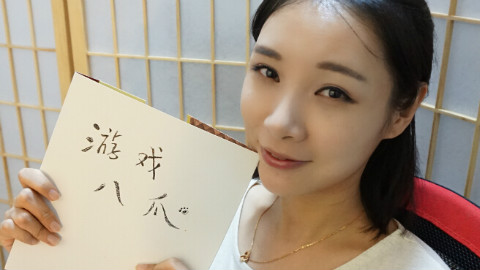 游戏
八爪